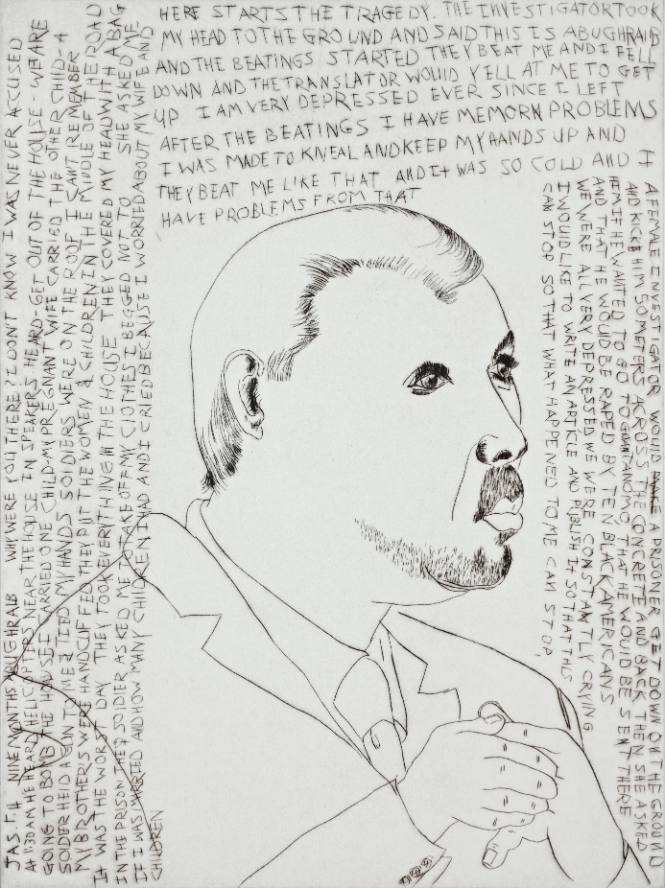 JAS. F.H. NINE MONTHS ABUGHRAIB WHY WERE YOU THERE? I DON'T KNOW I WAS NEVER ACCUSED
At 1:30 AM HE HEARD HELICOPTERS NEAR THE HOUSE IN SPEAKERS HEARD-GET OUT OF THE HOUSE - WE ARE
GOING TO BOMB THE HOUSE I CARRIED ONE CHILD-MY PREGNANT WIFE CARRIED THE OTHER CHILD - A
SOLDIER HELD A GUN TO ME & TIED MY HANDS SOLDIERS WERE ON THE ROOF I CAN'T REMEMBER
MY BROTHERS WERE HANDCUFFED THEY PUT THE WOMEN & CHILDREN IN THE MIDDLE OF THE ROAD
IT WAS THE WORST DAY THEY TOOK EVERYTHING IN THE HOUSE THEY COVERED MY HEAD WITH A BAG
IN THE PRISON THE SOLDIER ASKED ME TO TAKE OFF MY CLOTHES I BEGGED NOT TO SHE ASKED ME
IF I WAS MARRIED AND HOW MANY CHILDREN I HAD AND I CRIED BECAUSE I WORRIED ABOUT MY WIFE AND
CHILDREN
HERE STARTS THE TRAGEDY. THE INVESTIGATOR TOOK
MY HEAD TO THE GROUND AND SAID THIS IS ABUGHRAIB
AND THE BEATINGS STARTED THEY BEAT ME AND I FELL
DOWN AND THE TRANSLATOR WOULD YELL AT ME TO GET
UP I AM VERY DEPRESSED EVER SINCE I LEFT
AFTER THE BEATINGS I HAVE MEMORN PROBLEMS
I WAS MADE TO KNEAL AND KEEP MY HANDS UP AND I
THEY BEAT ME LIKE THAT AND It WAS SO COLD AND
HAVE PROBLEMS FROM THAT
A FEMALE INVESTIGATOR WOULD MAKE A PRISONER GET DOWN ON THE GROUND
AND KICK HIM 50 METERS ACROSS THE CONCRETE AND BACK THEN SHE ASKED
HEM IF HE WANTED TO GO TO GUANTANOMO THAT HE WOULD BE SENT THERE
AND THAT HE WOULD BE RAPED BY TEN BLACK AMERICANS
WE WERE ALL VERY DEPRESSED WE WERE CONSTANTLY CRYING
I WOULD LIKE TO WRITE AN ARTICLE AND PUBLISH IT SO THAT THIS
CAN STOP SO THAT WHAT HAPPENED TO ME CAN STOP